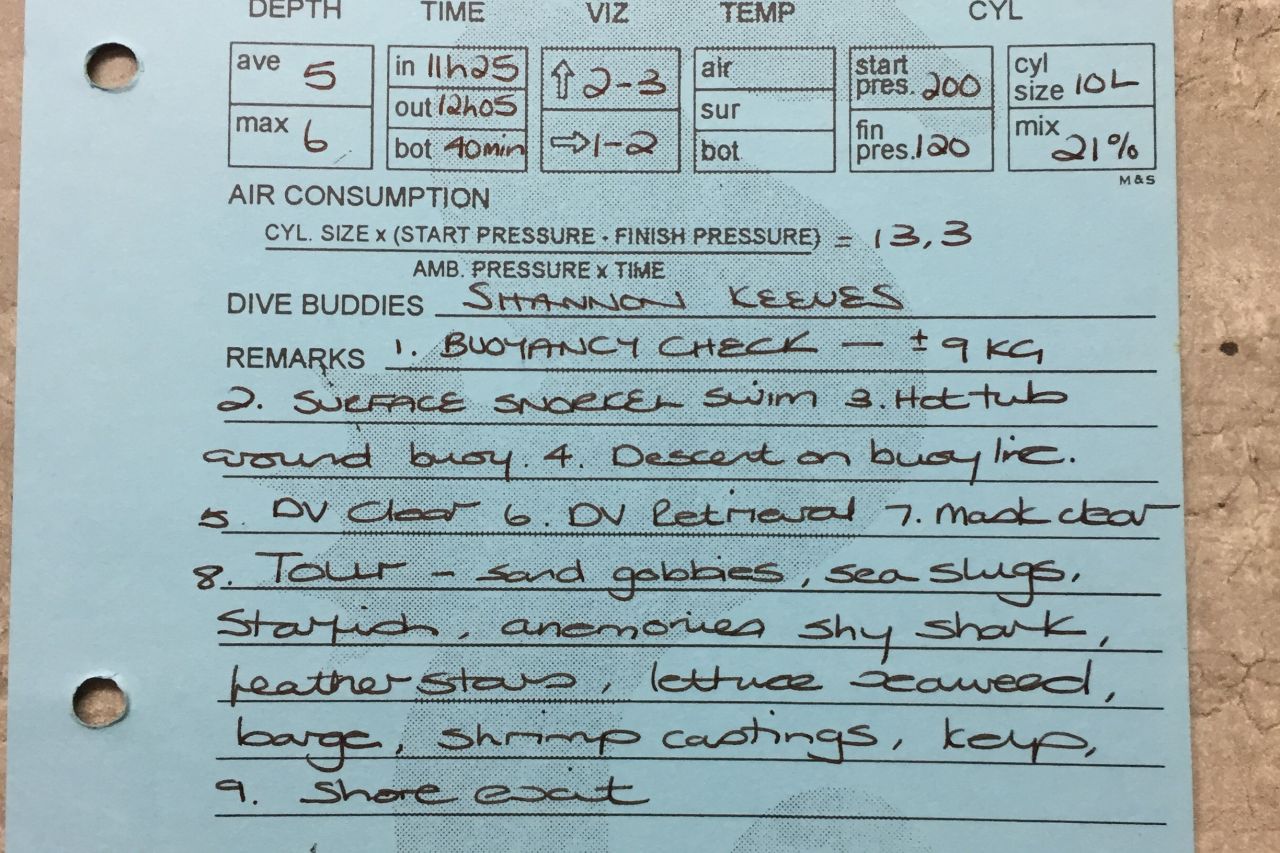 DEPTH TIME VIZ TEMP CYL
ave 5 in 11h25 ⇧ 2-3 air start pres. 200 cyl size 10L
max 6 out 12h05 ⇨ 1-2 sur fin pres. 120 mix 21%
bot 40min bot
M&S
AIR CONSUMPTION
CYL. SIZE x (START PRESSURE - FINISH PRESSURE) = 13,3
AMB. PRESSURE x TIME
DIVE BUDDIES SHANNON KEEVES
REMARKS 1. BUOYANCY CHECK — ±9 KG
2. SURFACE SNORKEL Swim 3. Hot tub
around buoy. 4. Descent on buoy line.
5. DV Clear 6. DV Retrieval 7. Mask clear
8. Tour - sand gobbies, sea slugs,
Starfish, anemonies shy shark,
feather stars, lettuce seaweed,
barge, shrimp castings, kelp,
9. Shore exit